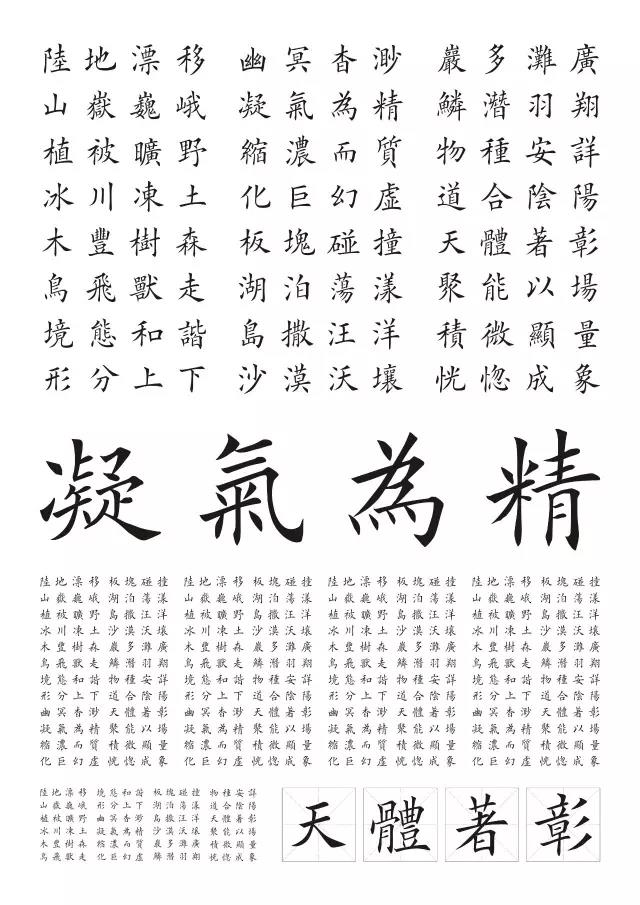 陸地漂移 幽冥杳渺 巖多灘廣
山嶽巍峨 凝氣為精 鱗潛羽翔
植被曠野 縮濃而質 物種安詳
冰川凍土 化巨幻虛 道合陰陽
木豐樹森 板塊碰撞 天體著彰
鳥飛獸走 湖泊蕩漾 聚能以場
境態和諧 島撒汪洋 積微顯量
形分上下 沙漠沃壤 恍惚成象
凝氣為精
陸地漂移 板塊碰撞 陸地漂移 板塊碰撞 陸地漂移 板塊碰撞 陸地漂移 板塊碰撞
山嶽巍峨 湖泊蕩漾 山嶽巍峨 湖泊蕩漾 山嶽巍峨 湖泊蕩漾 山嶽巍峨 湖泊蕩漾
植被曠野 島撒汪洋 植被曠野 島撒汪洋 植被曠野 島撒汪洋 植被曠野 島撒汪洋
冰川凍土 沙漠沃壤 冰川凍土 沙漠沃壤 冰川凍土 沙漠沃壤 冰川凍土 沙漠沃壤
木豐樹森 巖多灘廣 木豐樹森 巖多灘廣 木豐樹森 巖多灘廣 木豐樹森 巖多灘廣
鳥飛獸走 鱗潛羽翔 鳥飛獸走 鱗潛羽翔 鳥飛獸走 鱗潛羽翔 鳥飛獸走 鱗潛羽翔
境態和諧 物種安詳 境態和諧 物種安詳 境態和諧 物種安詳 境態和諧 物種安詳
形分上下 道合陰陽 形分上下 道合陰陽 形分上下 道合陰陽 形分上下 道合陰陽
幽冥杳渺 天體著彰 幽冥杳渺 天體著彰 幽冥杳渺 天體著彰 幽冥杳渺 天體著彰
凝氣為精 聚能以場 凝氣為精 聚能以場 凝氣為精 聚能以場 凝氣為精 聚能以場
縮濃而質 積微顯量 縮濃而質 積微顯量 縮濃而質 積微顯量 縮濃而質 積微顯量
化巨幻虛 恍惚成象 化巨幻虛 恍惚成象 化巨幻虛 恍惚成象 化巨幻虛 恍惚成象
陸地漂移 境態和諧 板塊碰撞 物種安詳
山嶽巍峨 形分上下 湖泊蕩漾 道合陰陽
植被曠野 幽冥杳渺 島撒汪洋 天體著彰
冰川凍土 凝氣為精 沙漠沃壤 聚能以場
木豐樹森 縮濃而質 巖多灘廣 積微顯量
鳥飛獸走 化巨幻虛 鱗潛羽翔 恍惚成象
天體著彰